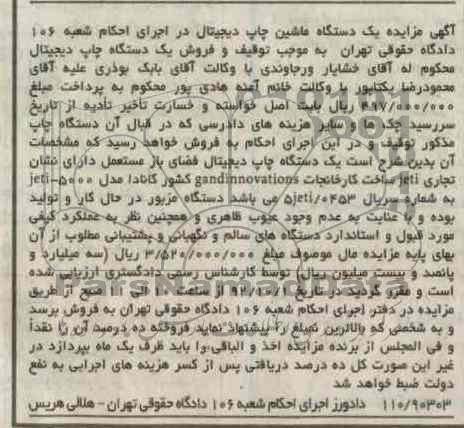 آگهی مزایده یک دستگاه ماشین چاپ دیجیتال در اجرای احکام شعبه ۱۰۶
دادگاه حقوقی تهران به موجب توقیف و فروش یک دستگاه چاپ دیجیتال
محکوم له آقای خشایار ورجاوندی با وکالت آقای بابک بوذری علیه آقای
محمودرضا یکتاپور با وکالت خانم آمنه هادی پور محکوم به پرداخت مبلغ
ریال بابت اصل خواسته و خسارت تأخیر تأدیه از تاریخ
سررسید و سایر هزینه های دادرسی که در قبال آن دستگاه چاپ
مذکور توقیف و در این اجرای احکام به فروش خواهد رسید که مشخصات
آن بدین شرح است یک دستگاه چاپ دیجیتال فضای باز مستعمل دارای نشان
تجاری jeti ساخت کارخانجات gandinnovations کشور کانادا مدل jeti-۵۰۰۰
به شماره سریال ۵jeti/۰۴۵۳ می باشد دستگاه مزبور در حال کار و تولید
بوده و با عنایت به عدم وجود عیوب ظاهری و همچنین نظر به عملکرد کیفی
مورد قبول و استاندارد دستگاه های سالم و نگهبانی و پشتیبانی مطلوب از آن
بهای پایه مزایده مال موصوف مبلغ ۳/۵۲۰/۰۰۰/۰۰۰ ریال (سه میلیارد و
پانصد و بیست میلیون ریال) توسط کارشناس رسمی دادگستری ارزیابی شده
است و مقرر گردید در تاریخ ۹۲/۱۰/۱ از ساعت ۱۰ الی ۱۱ صبح از طریق
مزایده در دفتر اجرای احکام شعبه ۱۰۶ دادگاه حقوقی تهران به فروش برسد
و به شخصی که بالاترین مبلغ را پیشنهاد نماید فروخته ده درصد آن را نقداً
و فی المجلس از برنده مزایده اخذ و الباقی را باید ظرف یک ماه بپردازد در
غیر این صورت کل ده درصد دریافتی پس از کسر هزینه های اجرایی به نفع
دولت ضبط خواهد شد
۱۱۰/۹۰۳۰۳ دادورز اجرای احکام شعبه ۱۰۶ دادگاه حقوقی تهران - هلالی هریس